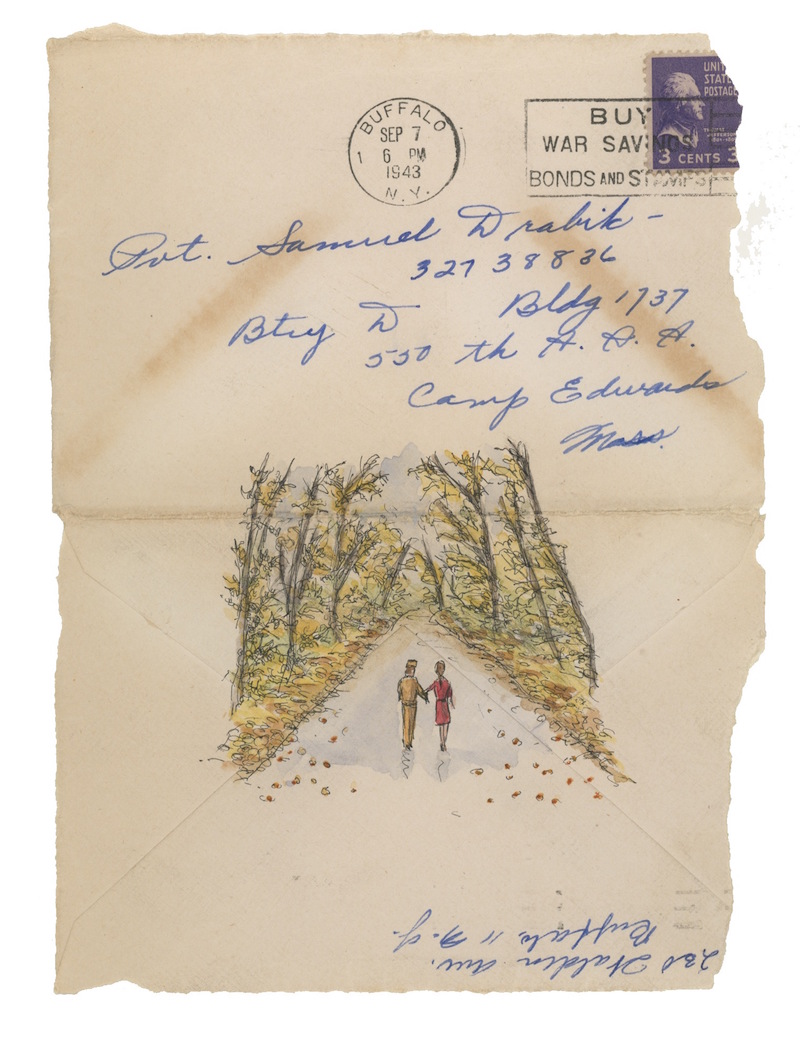 BUFFALO
SEP 7
1 6 PM
1943
N.Y.
BUY
WAR SAVINGS
BONDS AND STAMPS
UNIT
STATE
POSTAGE
3 CENTS 3
Pvt. Samuel Drabik -
32738836
Btry D Bldg 1737
550 th A. A. A.
Camp Edwards
Mass.
Walden Ave.
Buffalo 11 N.Y.